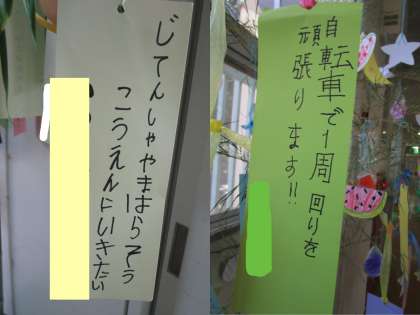 じてんしゃやまはらそう
こうえんにいきたい
自転車で1周回りを
頑張ります!!